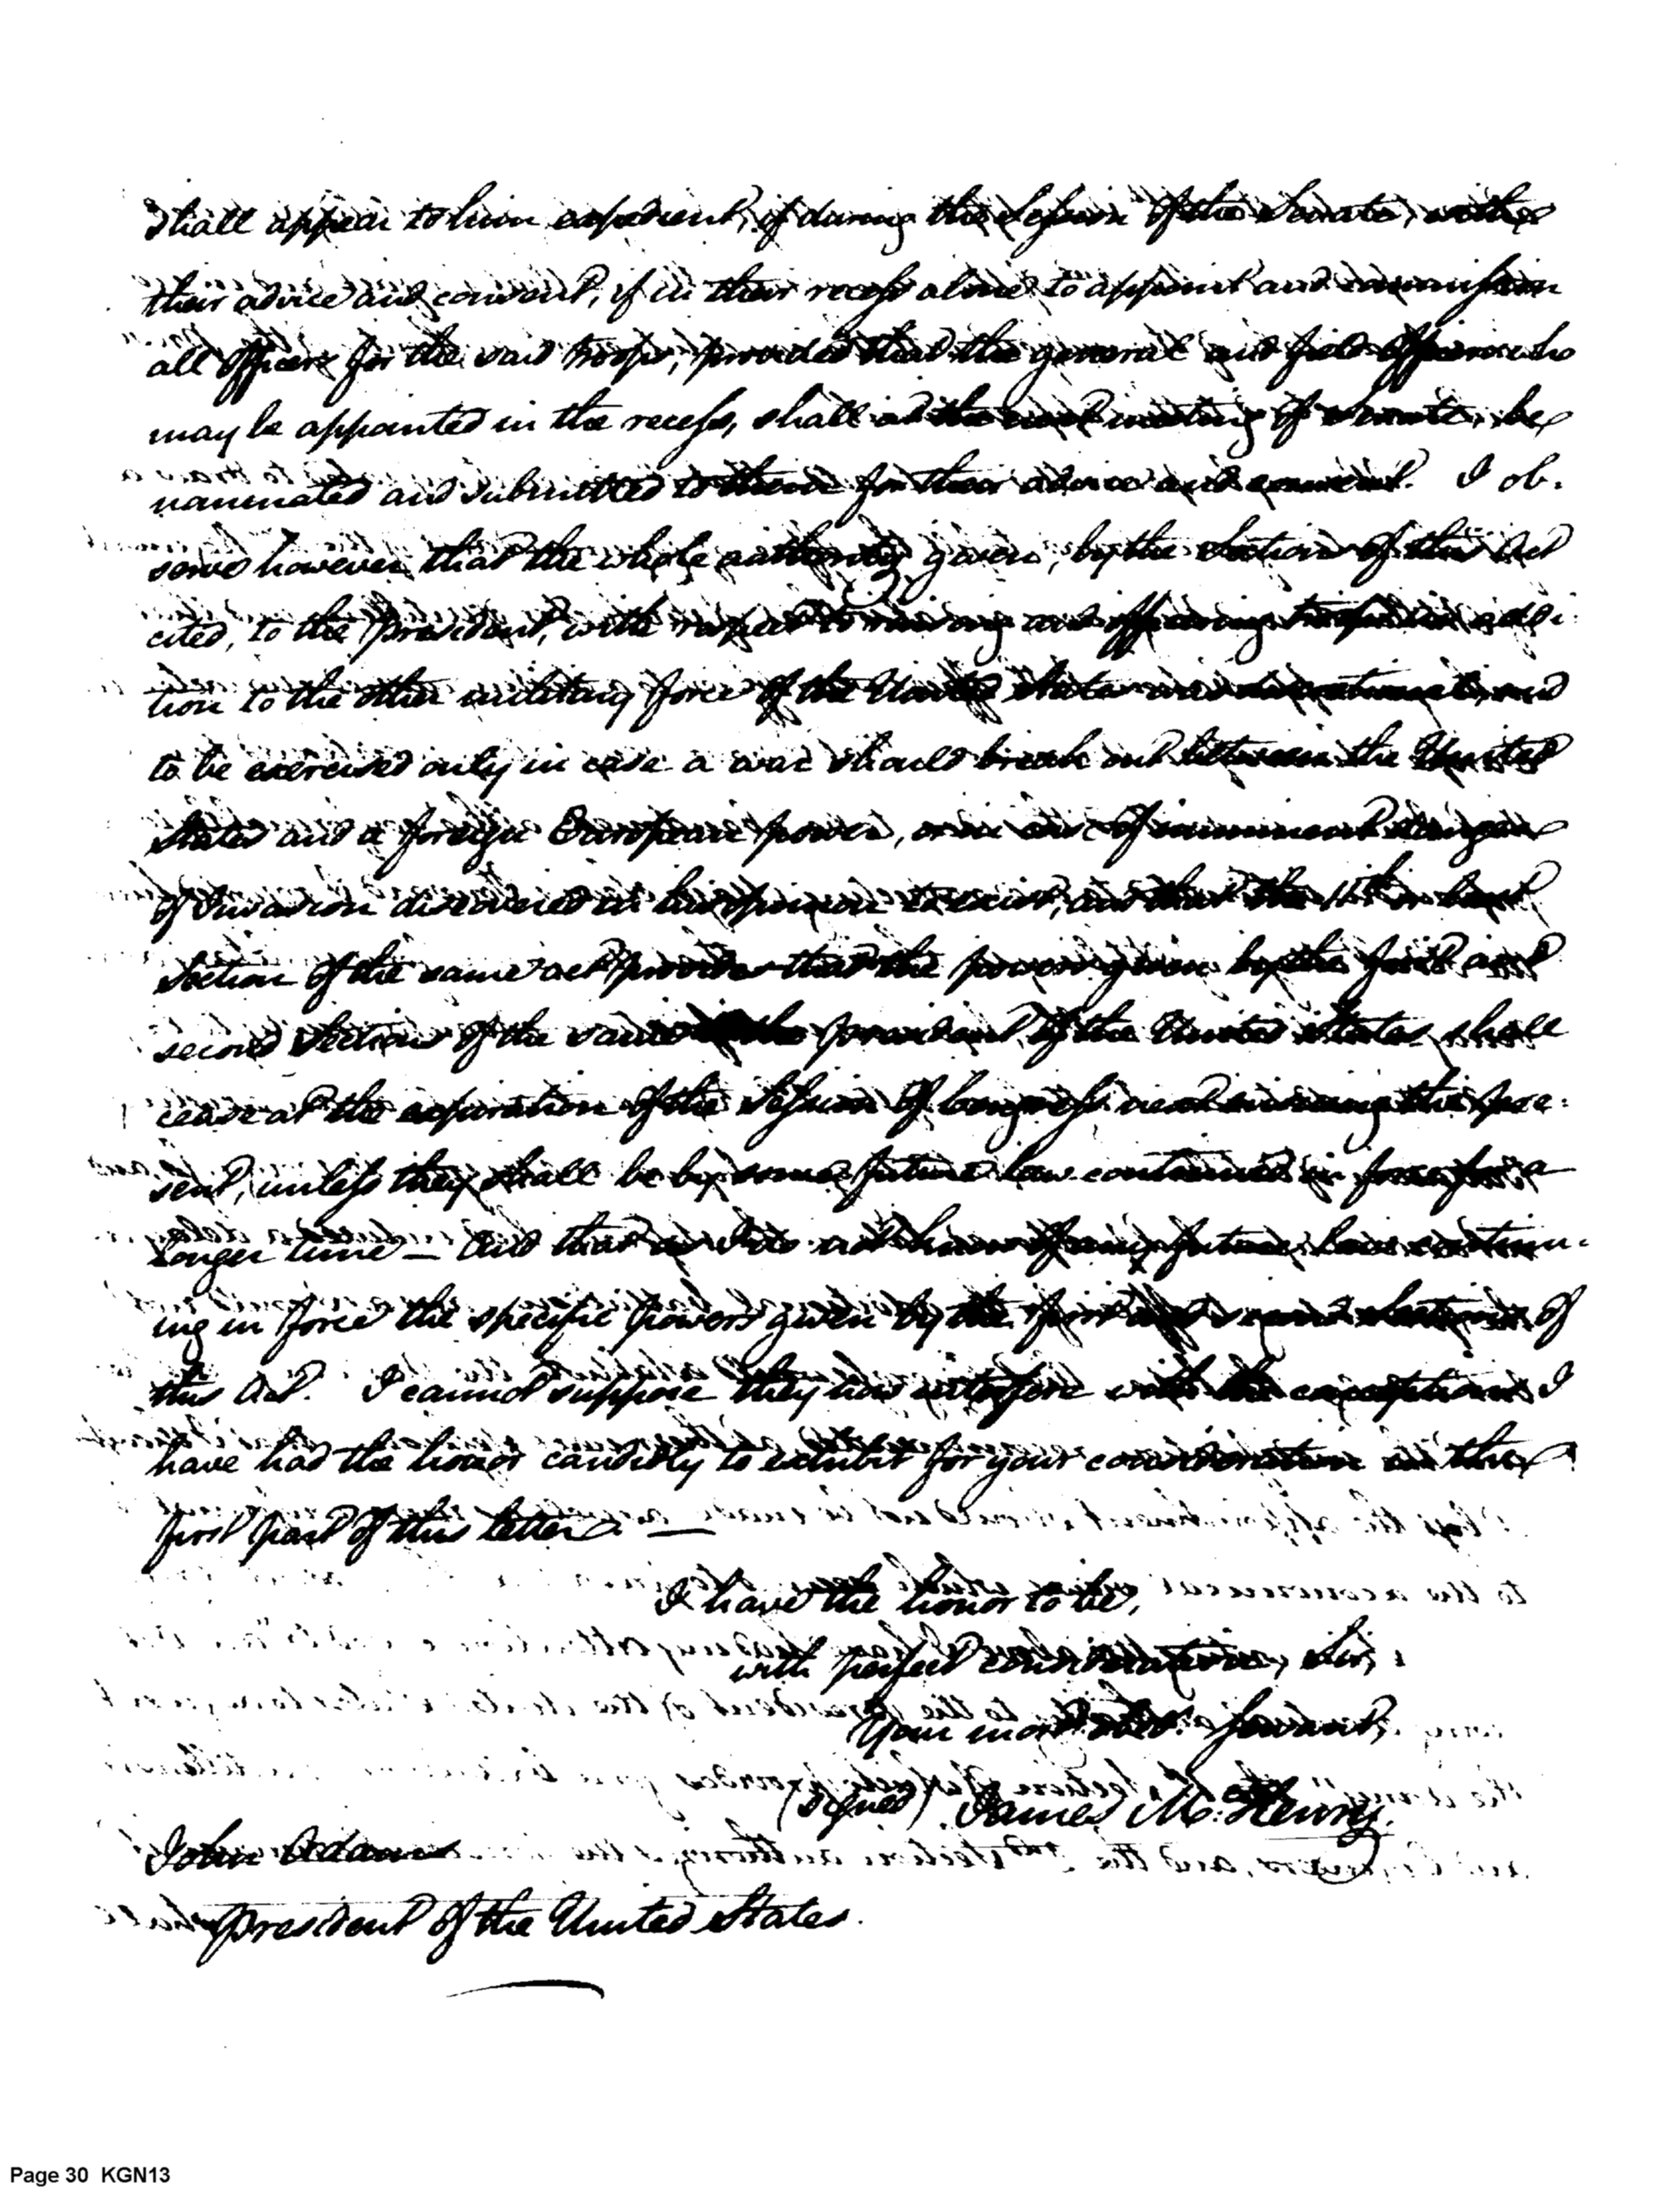 shall appear to him expedient, if during the Session of the Senate, with
their advice and consent, if in their recess alone to appoint and commission
all officers for the said troops, provided that the general and field officers who
may be appointed in the recess, shall at the next meeting of Senate, be
nominated and submitted to them for their advice and consent. I ob-
serve however, that the whole authority given, by the Sections of this Act
cited, to the President, with respect to raising and officering troops in addi-
tion to the other military force of the United States was and
to be exercised only in case a war should break out between the United
States and a foreign European power, or in case of imminent danger
of Invasion discovered in his opinion to exist, and that the 11th or last
Section of the same act provides that the powers given by the first and
second Sections of the same to the president of the United States, shall
cease at the expiration of the Session of Congress next ensuing the pre-
sent, unless they shall be by some future law continued in force for a
longer time — And that as I do not know of any future law continu-
ing in force the specific powers given by the first and second sections of
this Act. I cannot suppose they now interfere with the exceptions I
have had the honor candidly to exhibit for your consideration in the
first part of this letter. —
I have the honor to be,
with perfect consideration, Sir,
Your most obed. servant,
(signed) James McHenry.
John Adams
President of the United States.
Page 30 KGN13